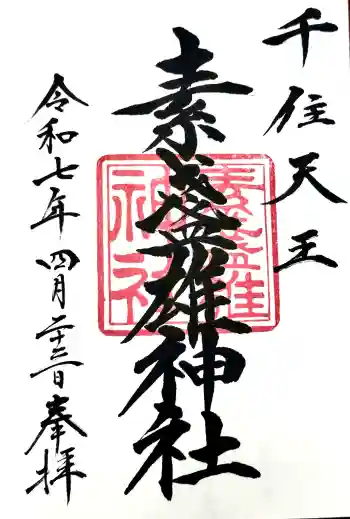 千住天王
素盞雄神社
令和七年四月二十三日奉拝
素盞雄神社